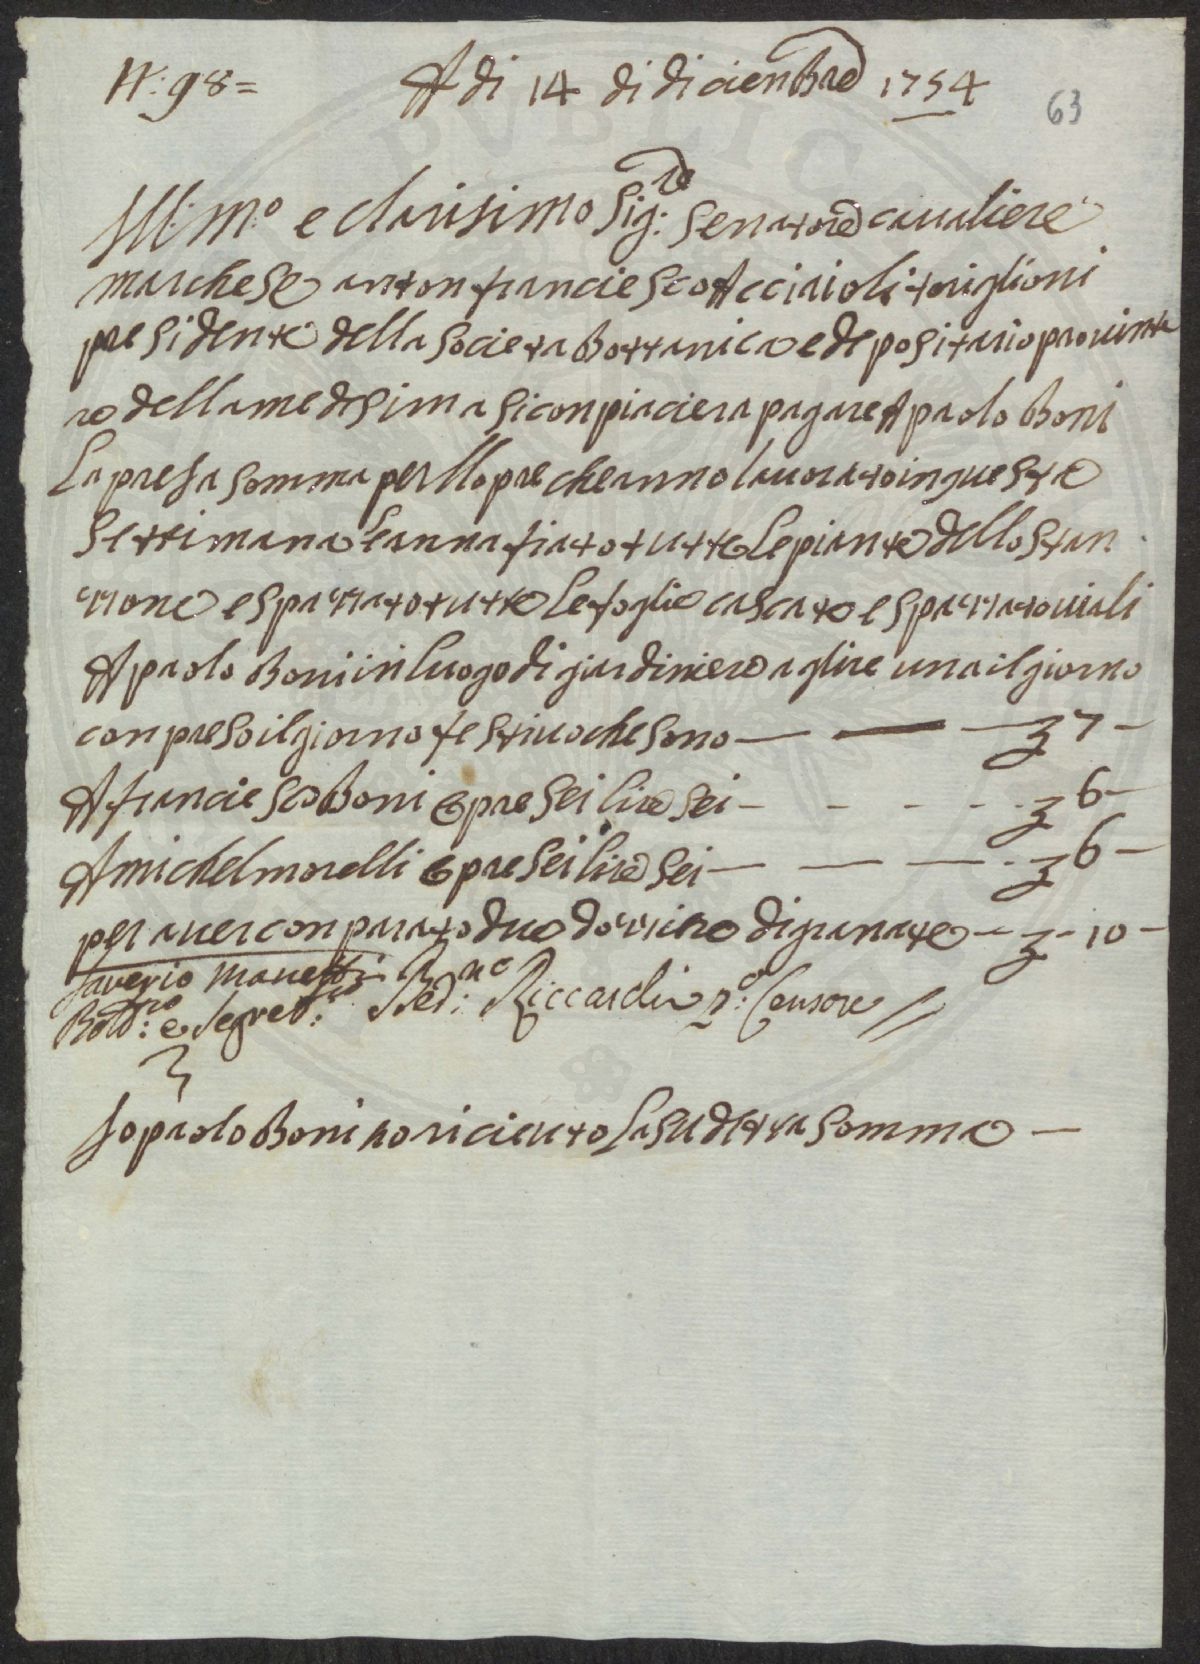 N: 98=
A di 14 di diciembre 1754
63
Ill: m:o e clarisimo Sig:re senatore cavaliere
marchese anton franciesco Acciaioli toriglioni
presidente della societa Bottanica e depositario pro
della medesima si conpiaciera pagare A paolo Boni
La presa somma per llopre che anno lavorato in queste
settimana e anna fiato tutte Le piante dello stan
zione e spazzato tutte Le foglie cascate e spazzato viali
A paolo Boni in luogo di giardiniero a glire una il giorno
conpreso il giorno festivo che sono — 7 –
A franciesco Boni opre sei lire sei – 6 –
A michel morelli opre sei lire sei – 6 –
per aver conparato due dozzine di granate – 10 –
Saverio Manetti
Bott:co e Segret:rio Bed: Riccardi p:o Censore //
Io paolo Boni ho riceuto La sudetta somma —